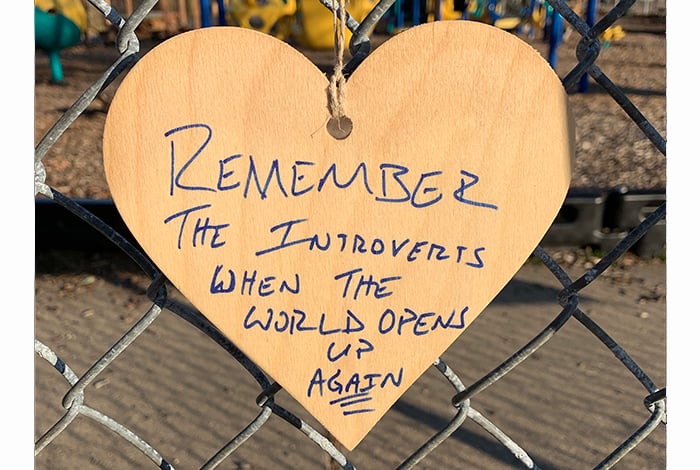 REMEMBER
THE INTROVERTS
WHEN THE
WORLD OPENS
UP
AGAIN